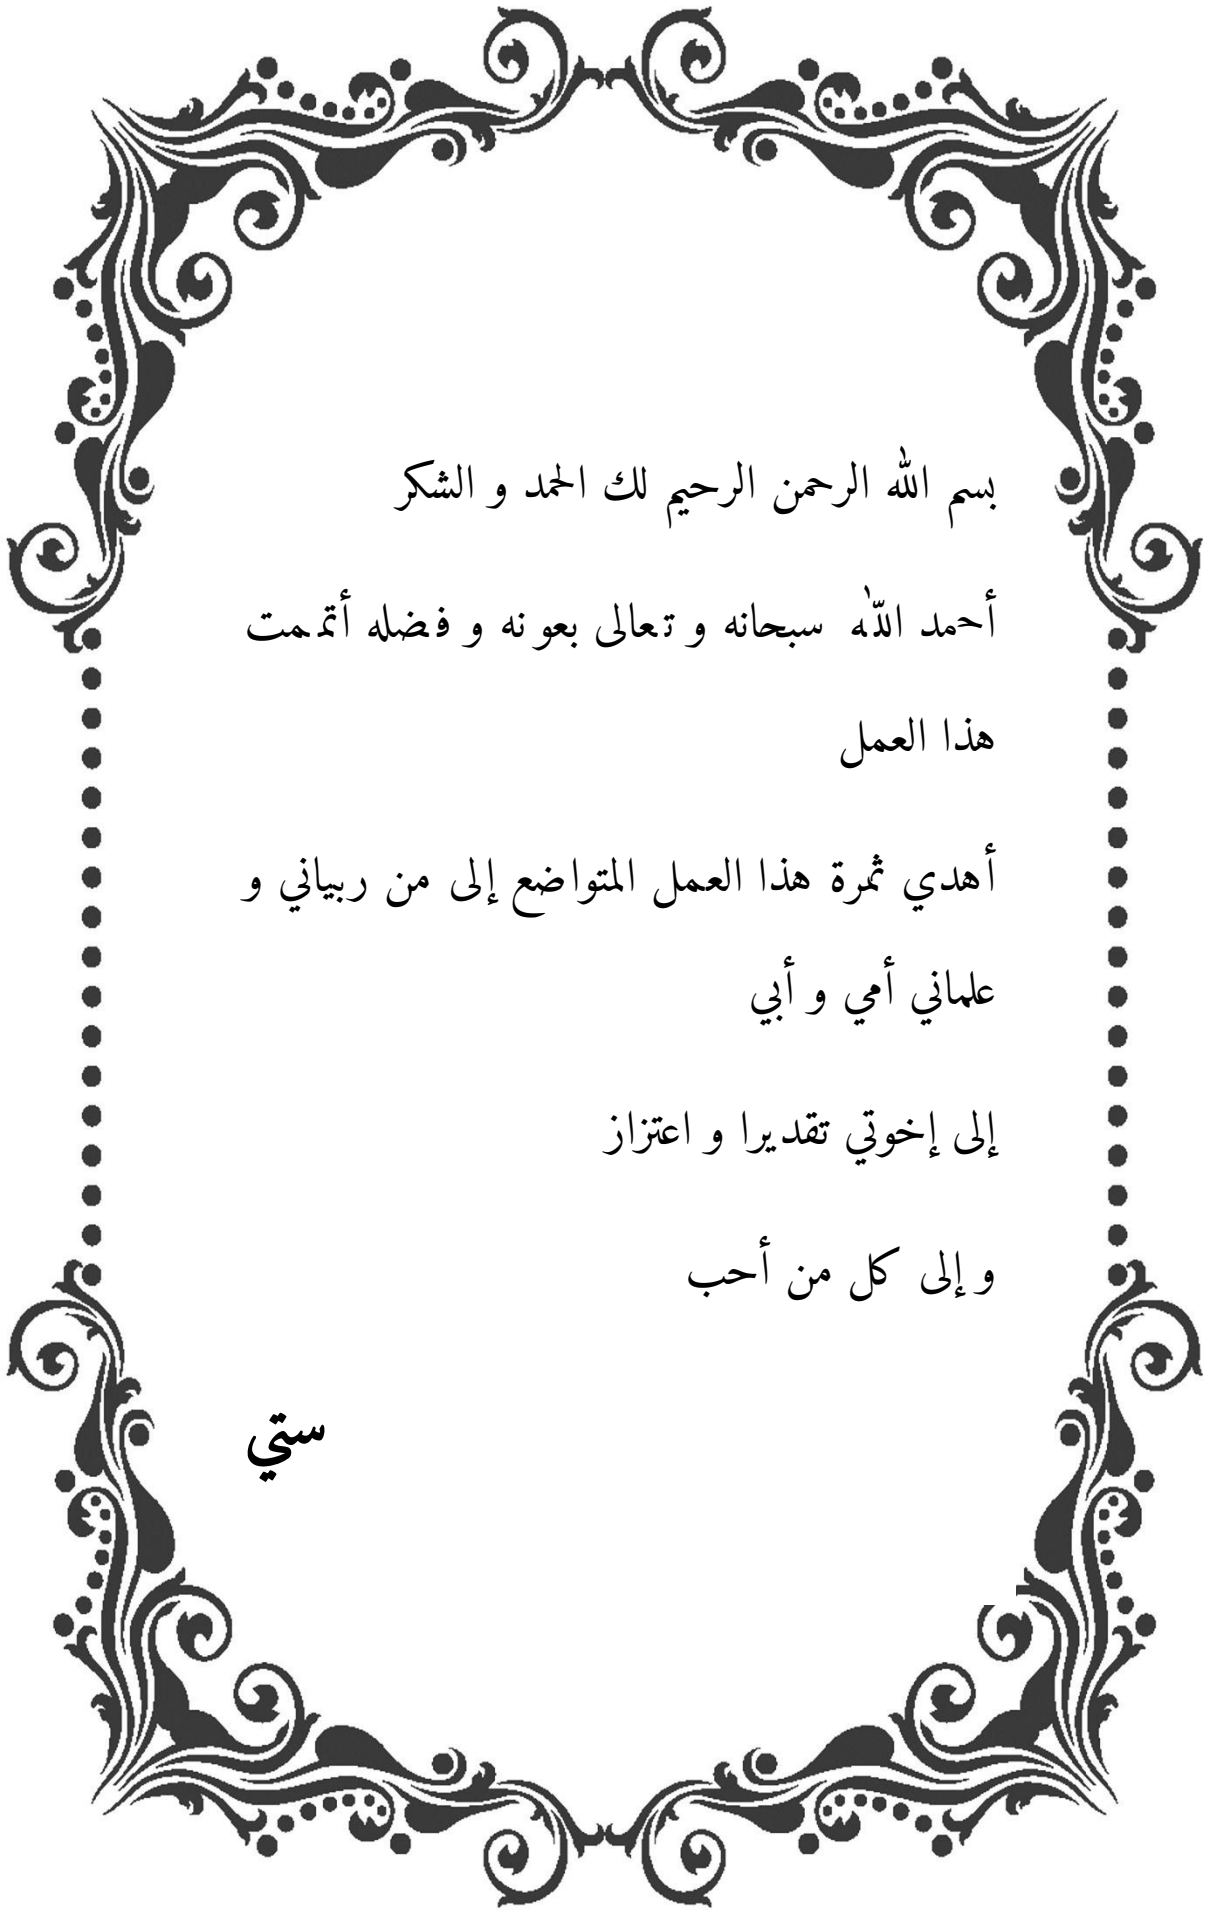 بسم الله الرحمن الرحيم لك الحمد و الشكر
أحمد الله سبحانه و تعالى بعونه و فضله أتممت
هذا العمل
أهدي ثمرة هذا العمل المتواضع إلى من ربياني و
علماني أمي و أبي
إلى إخوتي تقديرا و اعتزاز
و إلى كل من أحب
ستي